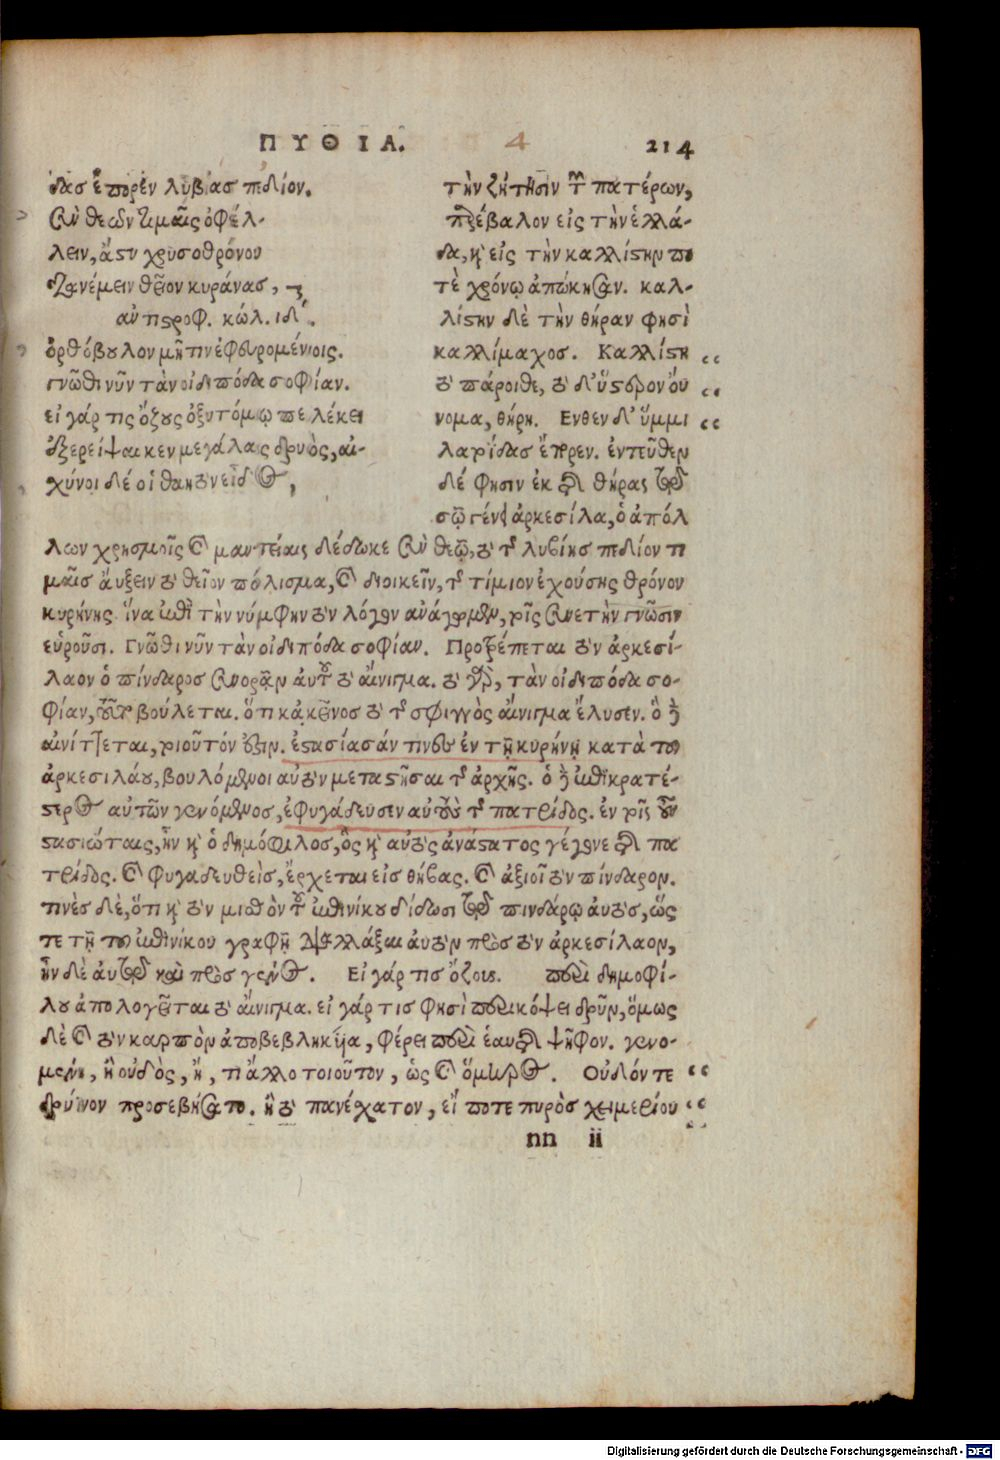 ΠΥΘΙΑ. 4 214
δας ἔπορεν λυβίας πεδίον.
σὺν θεῶν τιμαῖς ὀφέλ-
λειν, ἄστυ χρυσοθρόνου
διανέμειν θεῖον κυράνας,
αντιστροφ. κώλ. ιδ´.
ὀρθόβουλον μῆτιν ἐφευρομένοις.
γνῶθι νῦν τὰν οἰδιπόδα σοφίαν.
εἰ γάρ τις ὄζους ὀξυτόμῳ πελέκει
ἐξερείψαι κεν μεγάλας δρυὸς, αἰ-
χύνοι δέ οἱ θαητὸν εἶδος,
τὴν ζήτησιν τῶν πατέρων,
μετέβαλον εἰς τὴν ἑλλά-
δα, καὶ εἰς τὴν καλλίστην πο
τὲ χρόνῳ ἀπῴκησαν. καλ-
λίστην δὲ τὴν θήραν φησὶ
καλλίμαχος. Καλλίστη
τὸ πάροιθε, τὸ δ' ὕστερον οὔ
νομα, θήρη. Ενθεν δ' ὔμμι
λατοίδας ἔπορεν. ἐντεῦθεν
δέ φησιν ἐκ τῆς θήρας τῷ
σῷ γένει ἀρκεσίλα, ὁ ἀπόλ
λων χρησμοῖς καὶ μαντείαις δέδωκε σὺν θεῷ, τὸ τῆς λυβίης πεδίον τι
μαῖς αὔξειν τὸ θεῖον πόλισμα, καὶ διοικεῖν, τῆς τίμιον ἐχούσης θρόνον
κυρήνης ἵνα ἐπὶ τὴν νύμφην τὸν λόγον ἀνάγωμεν, τοῖς συνετὴν γνῶσιν
εὑροῦσι. Γνῶθι νῦν τὰν οἰδιπόδα σοφίαν. Προτρέπεται τὸν ἀρκεσί-
λαον ὁ πίνδαρος συνορᾶν αὐτοῦ τὸ αἴνιγμα. τὸ γὰρ, τὰν οἰδιπόδα σο-
φίαν, τοῦτο βούλεται. ὅτι κἀκεῖνος τὸ τῆς σφιγγὸς αἴνιγμα ἔλυσεν. ὃ δὲ
αἰνίττεται, τοιοῦτόν ἐστιν. ἐστασίασάν τινες ἐν τῇ κυρήνῃ κατὰ τοῦ
ἀρκεσιλάου, βουλόμενοι αὐτὸν μεταστῆσαι τῆς ἀρχῆς. ὁ δὲ ἐπικρατέ-
στερος αὐτῶν γενόμενος, ἐφυγάδευσεν αὐτοὺς τῆς πατρίδος. ἐν τοῖς οὖν
στασιώταις, ἦν καὶ ὁ δημόφιλος, ὃς καὶ αὐτὸς ἀνάστατος γέγονε τῆς πα
τρίδος. καὶ φυγαδευθεὶς, ἔρχεται εἰς θήβας. καὶ ἀξιοῖ τὸν πίνδαρον.
τινὲς δὲ, ὅτι καὶ τὸν μισθὸν τοῦ ἐπινίκου δίδωσι τῷ πινδάρῳ αὐτὸς, ὥς
τε τῇ τοῦ ἐπινίκου γραφῇ διαλλάξαι αὐτὸν πρὸς τὸν ἀρκεσίλαον,
ἦν δὲ αὐτῷ καὶ πρὸς γένος. Εἰ γάρ τις ὄζους. περὶ δημοφί-
λου ἀπολογεῖται τὸ αἴνιγμα. εἰ γάρ τις φησὶ περικόψει δρῦν, ὅμως
δὲ καὶ τὸν καρπὸν ἀποβεβληκυῖα, φέρει περὶ ἑαυτῆς ψῆφον. γενο-
μένη, ἢ οὐδὸς, ἤ, τι ἄλλο τοιοῦτον, ὡς καὶ ὅμηρος. Οὐδόν τε
δρύϊνον προσεβήσατο. ἢ τὸ πανέχατον, εἴ ποτε πυρὸς χειμερίου
nn ii
Digitalisierung gefördert durch die Deutsche Forschungsgemeinschaft - DFG